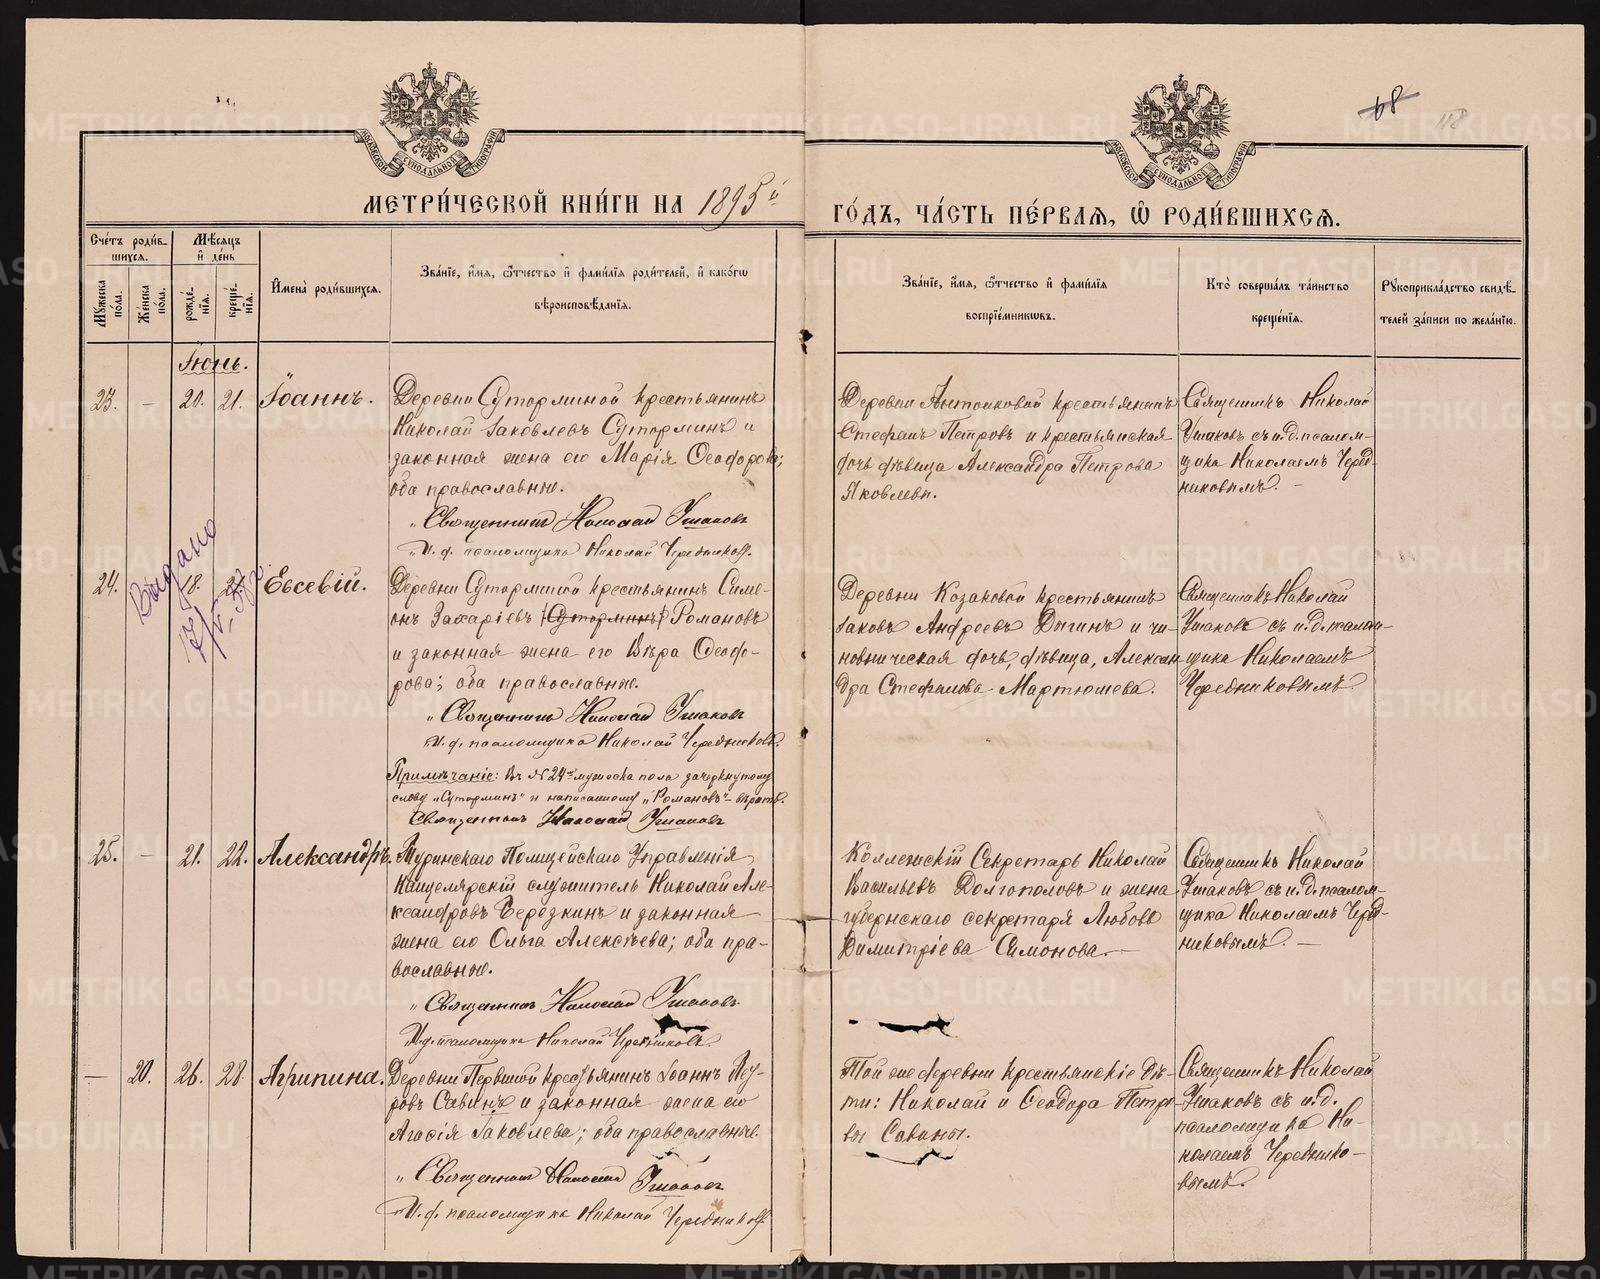 68
118
МОСКОВСКОЙ СѴНОДАЛЬНОЙ ТИПОГРАФІИ
МОСКОВСКОЙ СѴНОДАЛЬНОЙ ТИПОГРАФІИ
МЕТРИ́ЧЕСКОЙ КНИ́ГИ НА 1895й ГО́ДЪ, ЧА́СТЬ ПЕ́РВАѦ, Ѡ҆ РОДИ́ВШИХСѦ.
Сче́тъ роди́в-
шихсѧ.
Мѣ́сѧцъ
и҆ де́нь
Мꙋ́жеска
по́ла.
Же́нска
по́ла.
рожде́-
нїѧ.
креще́-
нїѧ.
И҆мена̀ роди́вшихсѧ.
Зва́нїе, и҆́мѧ, ѻ҆́тчество и҆ фами́лїѧ роди́телей, и҆ како́гѡ
вѣроисповѣ́данїѧ.
Зва́нїе, и҆́мѧ, ѻ҆́тчество и҆ фами́лїѧ
воспрїе́мникѡвъ.
Кто̀ соверша́лъ та́инство
креще́нїѧ.
Рꙋкоприкла́дство свидѣ́-
телей за́писи по жела́нїю.
Іюнь.
23. — 20. 21. Іоаннъ.
Деревни Суторминой крестьянинъ
Николай Іаковлевъ Суторминъ и
законная жена его Марія Ѳеодорова;
оба православные.
„Священникъ Николай Ушаковъ
„И. д. псаломщика Николай Чередниковъ.
Деревни Антоновой крестьянинъ
Стефанъ Петровъ и крестьянская
дочь дѣвица Александра Петрова
Яковлевы.
Священникъ Николай
Ушаковъ съ и.д. псалом-
щика Николаемъ Черед-
никовымъ. —
24. 18. Евсевій.
Выдано
Деревни Суторминой крестьянинъ Симе-
онъ Захаріевъ (Суторминъ) Романовъ
и законная жена его Вѣра Ѳеодо-
рова; оба православные.
„Священникъ Николай Ушаковъ
И. д. псаломщика Николай Чередниковъ.
Примѣчаніе: Въ № 24мъ мужеска пола зачеркнутому
слову „Суторминъ" и написанному „Романовъ" — вѣрить.
Священникъ Николай Ушаковъ
Деревни Козаковой крестьянинъ
Іаковъ Андреевъ Дигинъ и чи-
новническая дочь, дѣвица, Алексан-
дра Стефанова Мартюшева.
Священникъ Николай
Ушаковъ съ и.д. псалом-
щика Николаемъ
Чередниковымъ.
25. — 21. 22. Александръ.
Туринскаго Полицейскаго Управленія
Канцелярскій служитель Николай Але-
ксандровъ Березкинъ и законная
жена его Ольга Алексѣева; оба пра-
вославные.
„Священникъ Николай Ушаковъ
И.д. псаломщика Николай Чередниковъ.
Коллежскій Секретарь Николай
Васильевъ Долгополовъ и жена
губернскаго секретаря Любовь
Димитріева Симонова. —
Священникъ Николай
Ушаковъ съ и.д. псалом-
щика Николаемъ Черед-
никовымъ. —
— 20. 26. 28. Агрипина.
Деревни Первиной крестьянинъ Іоаннъ Пет-
ровъ Савинъ и законная жена его
Агаѳія Іаковлева; оба православные.
„Священникъ Николай Ушаковъ
И. д. псаломщика Николай Чередниковъ
Той же деревни крестьянскіе дѣ-
ти: Николай и Ѳеодора Петро-
вы Савины.
Священникъ Николай
Ушаковъ съ и.д.
псаломщика Ни-
колаемъ Чередико-
вымъ.